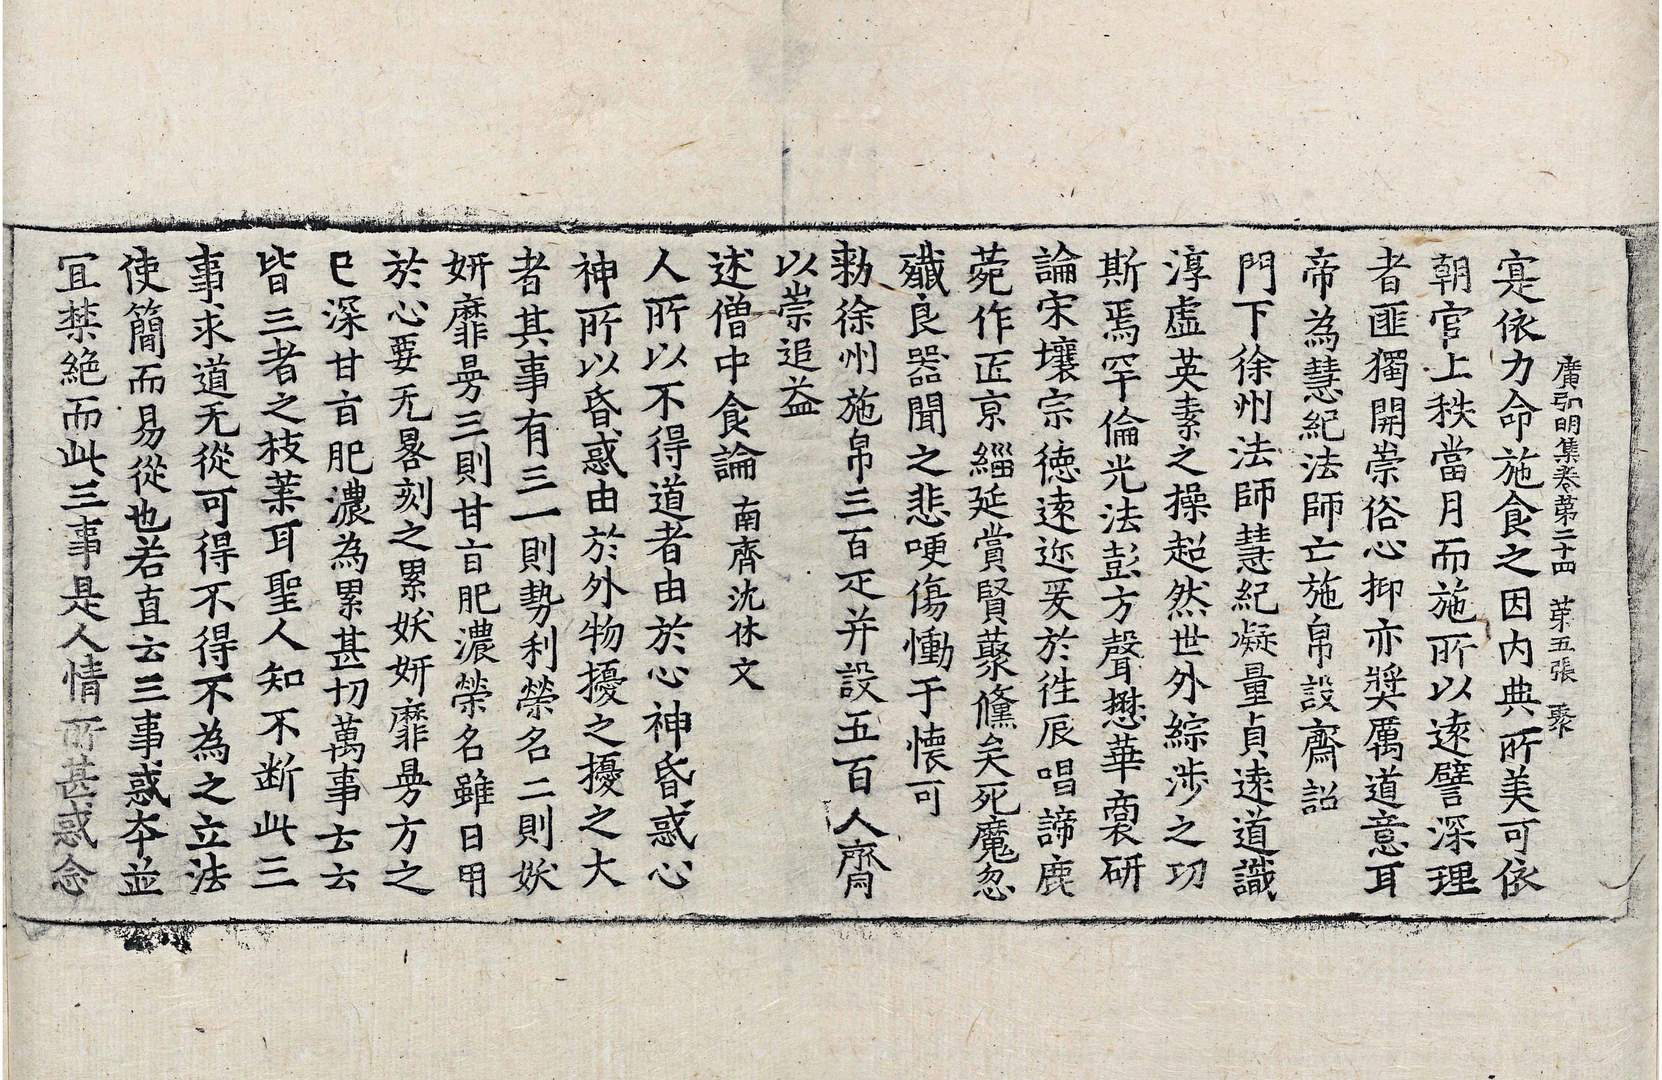 廣弘明集卷第二十四　第五張　聚
寔依力命施食之因内典所美可依
朝官上秩當月而施所以遠譬深理
者匪獨開崇俗心抑亦奬厲道意耳
帝為慧紀法師亡施帛設齋詔
門下徐州法師慧紀凝量貞遠道識
淳虛英素之操超然世外綜涉之功
斯焉罕倫光法彭方聲懋華裔研
論宋壤宗德遠迩爰於往辰唱諦鹿
菀作匠京緇延賞賢蘂儵矣死魔忽
殲良器聞之悲哽傷慟于懷可
勑徐州施帛三百疋并設五百人齋
以崇追益
述僧中食論 南齊沈休文
人所以不得道者由於心神昏惑心
神所以昏惑由於外物擾之擾之大
者其事有三一則勢利榮名二則妖
妍靡曼三則甘旨肥濃榮名雖日用
於心要无晷刻之累妖妍靡曼方之
已深甘旨肥濃為累甚切萬事云云
皆三者之枝葉耳聖人知不断此三
事求道无從可得不得不為之立法
使簡而易從也若直云三事惑本並
冝禁絶而此三事是人情所甚惑念